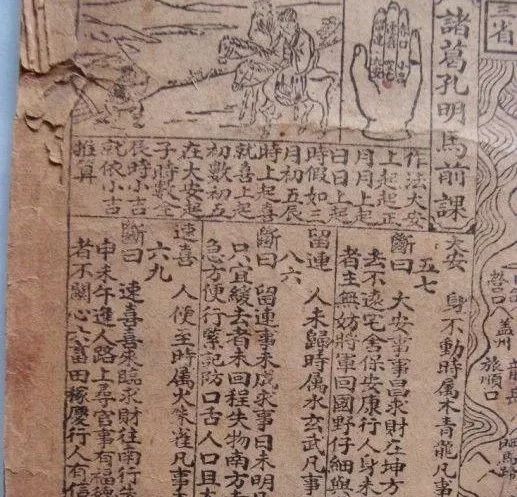 諸葛孔明馬前課
作法大安
上起起正
月月上起
日日上起
時假如三
月初五辰
時上起喜
就喜上起
初數初五
在大安起
子時數至
辰時小吉
就依小吉
推算
大安　身不動時属木青龍凡事
五七
斷曰　大安事事昌求財在坤方
去不遠宅舍保安康行人身未
者主無妨將軍回國野仔細與
留連　人未歸時属水玄武凡事
八六
斷曰　留連事未成求事日未明凡
只宜緩去者未回程失物南方
急方便行緊記防口舌人口且
速喜　人便至時属火朱雀凡事
六九
斷曰　速喜喜來臨求財往南行失
申未午進人路上尋官事有福德
者不關心六畜田稼慶行人有信
省
營口
盖州
旅順口